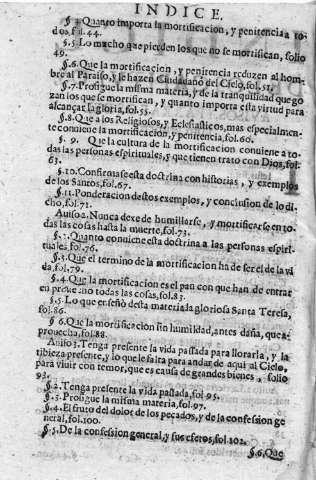 INDICE.
§.4 Quanto importa la mortificacion, y penitencia a to-
dos, fol.44.
§.5. Lo mucho que pierden los que no se mortifican, folio
49.
§.6. Que la mortificacion, y penitencia reduzen al hom-
bre al Paraiso, y le hazen Ciudadano del Cielo, fol.51.
§.7. Prosigue la misma materia, y de la tranquilidad que go
zan los que se mortifican, y quanto importa esta virtud para
alcançar la gloria, fol.55.
§.8. Que a los Religiosos, y Eclesiasticos, mas especialmen-
te conviene la mortificacion, y penitencia, fol.60.
§. 9. Que la cultura de la mortificacion conviene a to-
das las personas espirituales, y que tienen trato con Dios, fol.
63.
§.10. Confirmase esta doctrina con historias, y exemplos
de los Santos, fol.67.
§.11. Ponderacion destos exemplos, y conclusion de lo di-
cho, fol.71.
Auiso 2. Nunca dexe de humillarse, y mortificarse en to-
das las cosas hasta la muerte, fol.73.
§.2. Quanto conviene esta doctrina a las personas espiri-
tuales, fol.76.
§.3. Que el termino de la mortificacion ha de ser el de la vi
da, fol.79.
§.4. Que la mortificacion es el pan con que han de entrar
en provecho todas las cosas, fol.83.
§.5. Lo que enseñò desta materia la gloriosa Santa Teresa,
fol.86.
§ 6. Que la mortificacion sin humildad, antes daña, que a-
prouecha, fol.88.
Auiso 3. Tenga presente la vida passada para llorarla, y la
tibieza presente, y lo que le falta para andar de aqui al Cielo,
para viuir con temor, que es causa de grandes bienes, folio
93.
§.2. Tenga presente la vida passada, fol.95.
§.3. Prosigue la misma materia, fol.97.
§.4. El fruto del dolor de los pecados, y de la confession ge
neral, fol.100.
§.5. De la confession general, y sus efetos, fol.102.
§.6. Que